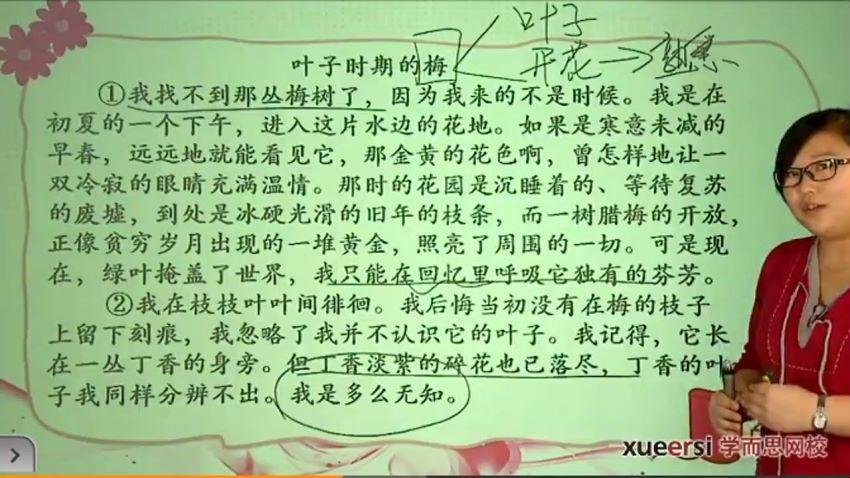 叶子
叶子时期的梅
开花→
①我找不到那丛梅树了，因为我来的不是时候。我是在
初夏的一个下午，进入这片水边的花地。如果是寒意未减的
早春，远远地就能看见它，那金黄的花色啊，曾怎样地让一
双冷寂的眼睛充满温情。那时的花园是沉睡着的、等待复苏
的废墟，到处是冰硬光滑的旧年的枝条，而一树腊梅的开放，
正像贫穷岁月出现的一堆黄金，照亮了周围的一切。可是现
在，绿叶掩盖了世界，我只能在回忆里呼吸它独有的芬芳。
②我在枝枝叶叶间徘徊。我后悔当初没有在梅的枝子
上留下刻痕，我忽略了我并不认识它的叶子。我记得，它长
在一丛丁香的身旁。但丁香淡紫的碎花也已落尽，丁香的叶
子我同样分辨不出。我是多么无知。
xueersi 学而思网校